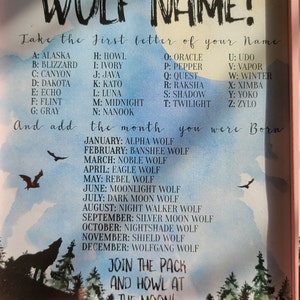 WOLF NAME!
Take the First letter of your Name
A: ALASKA
B: BLIZZARD
C: CANYON
D: DAKOTA
E: ECHO
F: FLINT
G: GRAY
H: HOWL
I: IVORY
J: JAVA
K: KATO
L: LUNA
M: MIDNIGHT
N: NANOOK
O: ORACLE
P: PEPPER
Q: QUEST
R: RAKSHA
S: SHADOW
T: TWILIGHT
U: UDO
V: VAPOR
W: WINTER
X: XIMBA
Y: YOKO
Z: ZYLO
And add the month you were Born
JANUARY: ALPHA WOLF
FEBRUARY: BANSHEE WOLF
MARCH: NOBLE WOLF
APRIL: EAGLE WOLF
MAY: REBEL WOLF
JUNE: MOONLIGHT WOLF
JULY: DARK MOON WOLF
AUGUST: NIGHT WALKER WOLF
SEPTEMBER: SILVER MOON WOLF
OCTOBER: NIGHTSHADE WOLF
NOVEMBER: SHIELD WOLF
DECEMBER: WOLFGANG WOLF
JOIN THE PACK
AND HOWL AT
THE MOON!